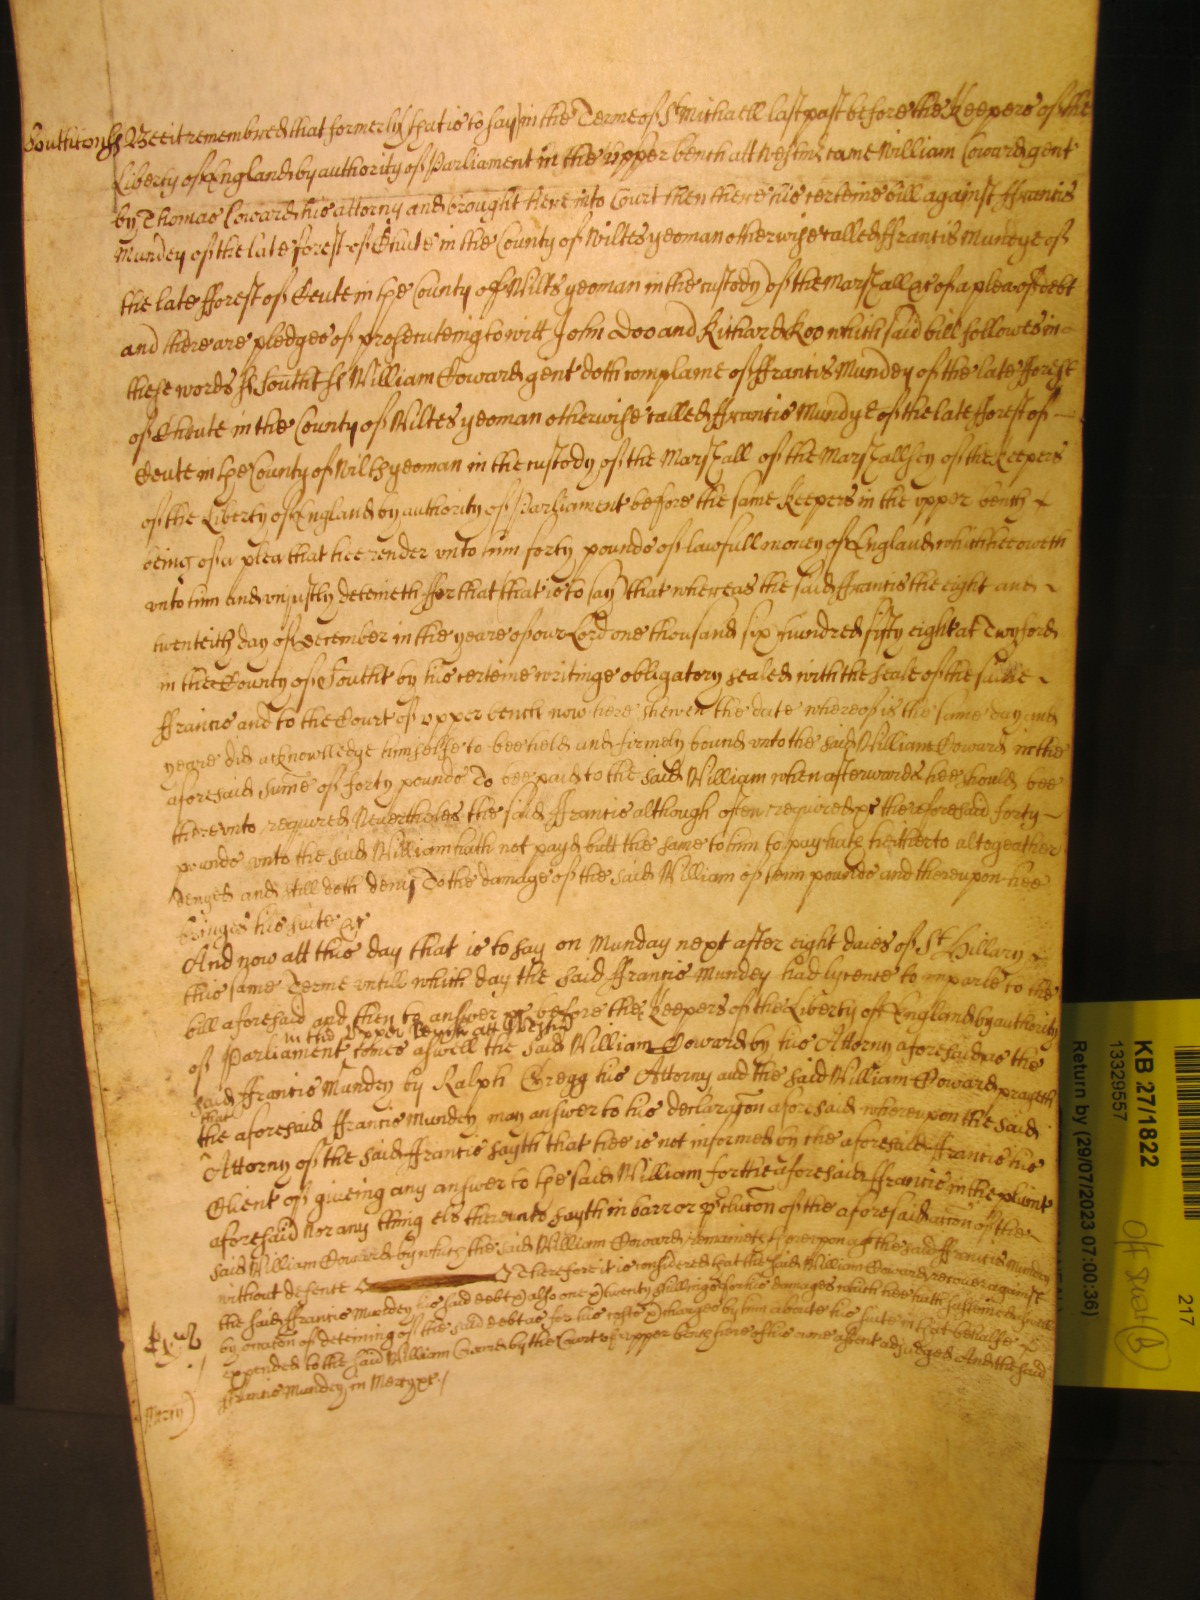 Southton ss Bee it remembred that formerly that is to say in the Terme of St Michaell last past before the Keepers of the
Liberty of England by authority of Parliament in the upper bench att Westmr came William Coward gent
by Thomas Coward his attorny and brought here into Court then there his certeine bill against ffrancis
Mundey of the late forest of Chute in the County of Wiltes yeoman otherwise called ffrancis Mundye of
the late fforest of Chute in the County of Wilts yeoman in the custody of the Marshall &c of a plea of debt
and there are pledges of prosecuteing to witt John Doo and Richard Roo which said bill followes in
these words ss Southt ss William Coward gent doth complaine of ffrancis Mundey of the late fforest
of Chute in the County of Wiltes yeoman otherwise called ffrancis Mundye of the late fforest of
Chute in the County of Wilts yeoman in the custody of the Marshall of the Marshallsey of the Keepers
of the Liberty of England by authority of Parliament before the same Keepers in the upper bench
being of a plea that hee render unto him forty pounds of lawfull money of England which hee oweth
unto him and unjustly deteineth ffor that that is to say that whereas the said ffrancis the eight and
twenteith day of December in the yeare of our Lord one thousand six hundred fifty eight at Twyford
in the County of Southt by his certeine writinge obligatory sealed with the seale of the said
ffrancis and to the Court of upper bench now here shewen the date whereof is the same day and
yeare did acknowledge himselfe to bee held and firmely bound unto the said William Coward in the
aforesaid sume of forty pounds To bee paid to the said William when afterwards hee should bee
thereunto required Neverthelesse the said ffrancis although often required &c the aforesaid forty
pounds unto the said William hath not payd butt the same to him to pay hath hitherto altogeather
denyed and still doth deny To the damage of the said William of tenn pounds and thereupon hee
bringes his suite &c
And now att this day that is to say on Munday next after eight daies of St Hillary
this same Terme untill which day the said ffrancis Mundey had lycence to imparle to the
bill aforesaid and then to answer &c before the Keepers of the Liberty of England by authority
in the upper bench att Westmr
of Parliament comes aswell the said William Coward by his Attorny aforesaid as the
said ffrancis Mundey by Ralph Gregg his Attorny and the said William Coward prayeth
that
the aforesaid ffrancis Mundey may answer to his declaracon aforesaid whereupon the said
Attorny of the said ffrancis sayth that hee is not informed by the aforesaid ffrancis his
Client of giveing any answer to the said William for the aforesaid ffrancis in the plaint
aforesaid Nor any thing els thereunto sayth in barr or pclusion of the aforesaid accon of the
said William Coward by which the said William Coward remaineth thereupon agt the said ffrancis Mundey
without defence Therefore it is considered that the said William Coward recover against
the said ffrancis Mundey his said debt & also one & twenty shillings for his damages which hee hath susteined aswell
by occasion of deteining of the said debt as for his costs & charges by him aboute his suite in that behalfe
expended to the said William Coward by the Court of upper bench here of his owne assent adjudged And the said
ffrancis Mundey in Mercy &c
Mercy
KB 27/1822
13329557
Return by (29/07/2023 07:00:36)
217